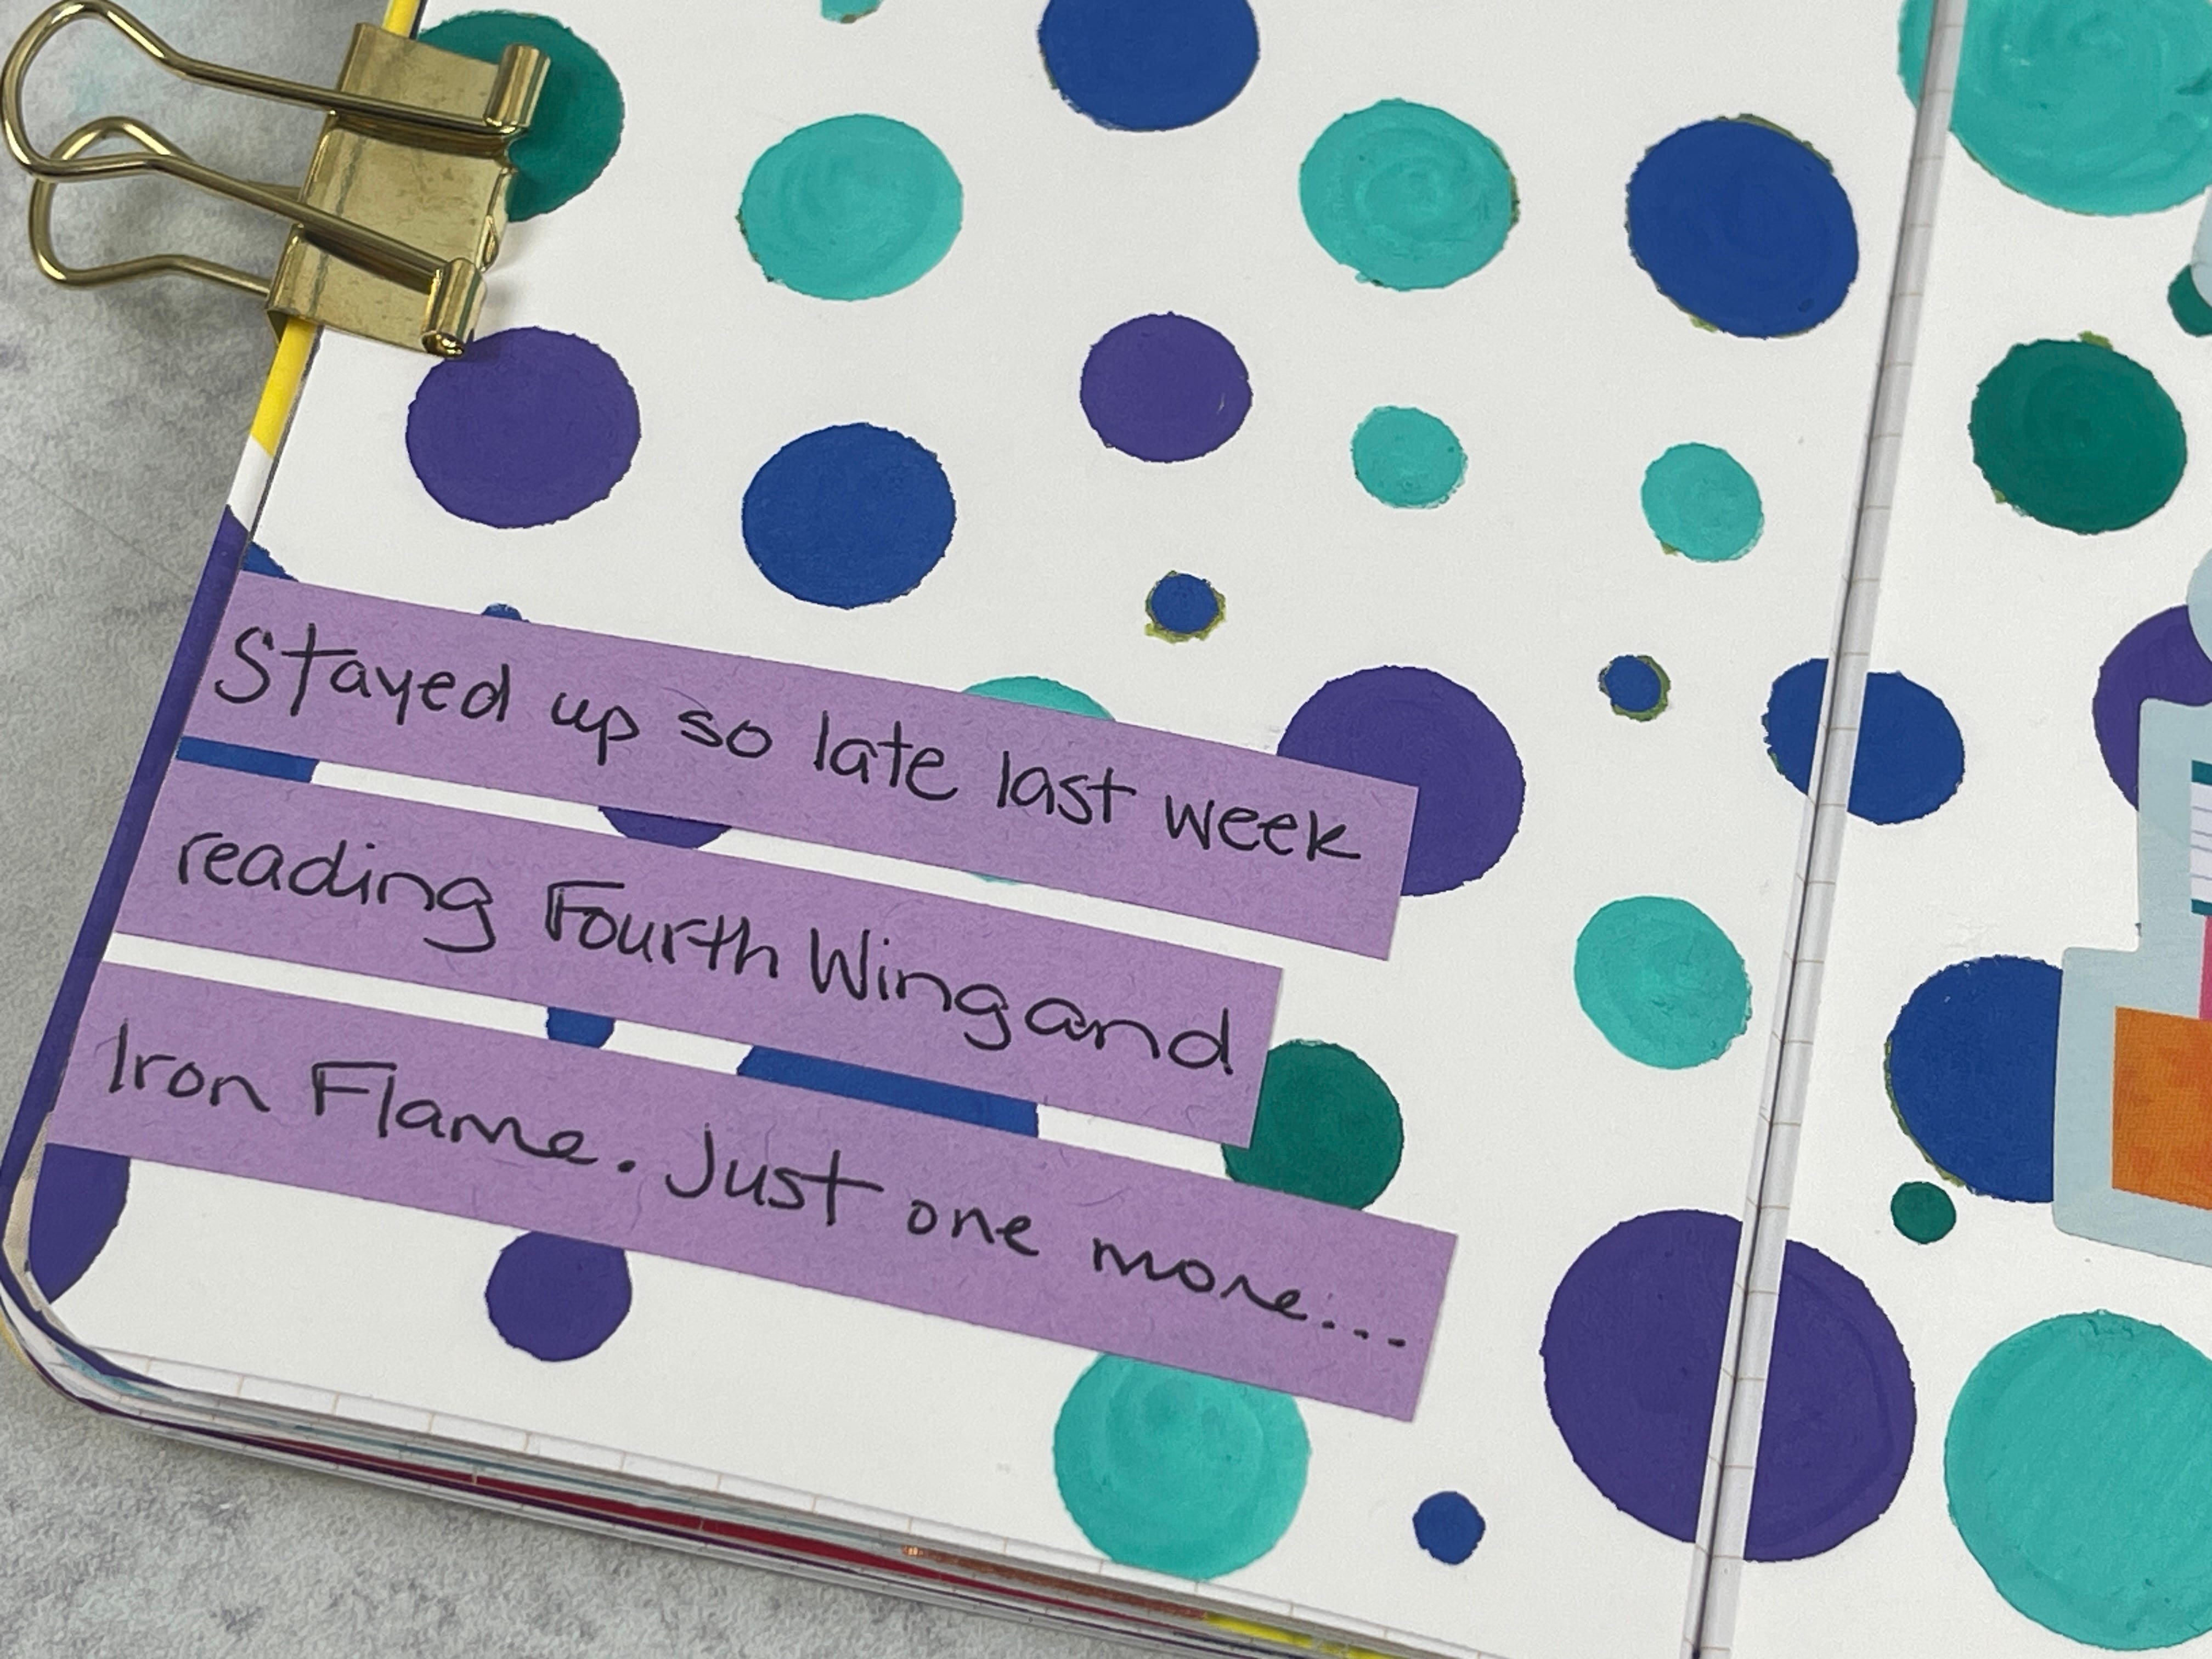 Stayed up so late last week
reading Fourth Wing and
Iron Flame. Just one more...